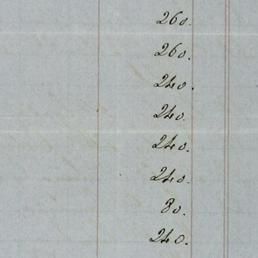 260.
260.
240.
240.
240.
240.
80.
240.